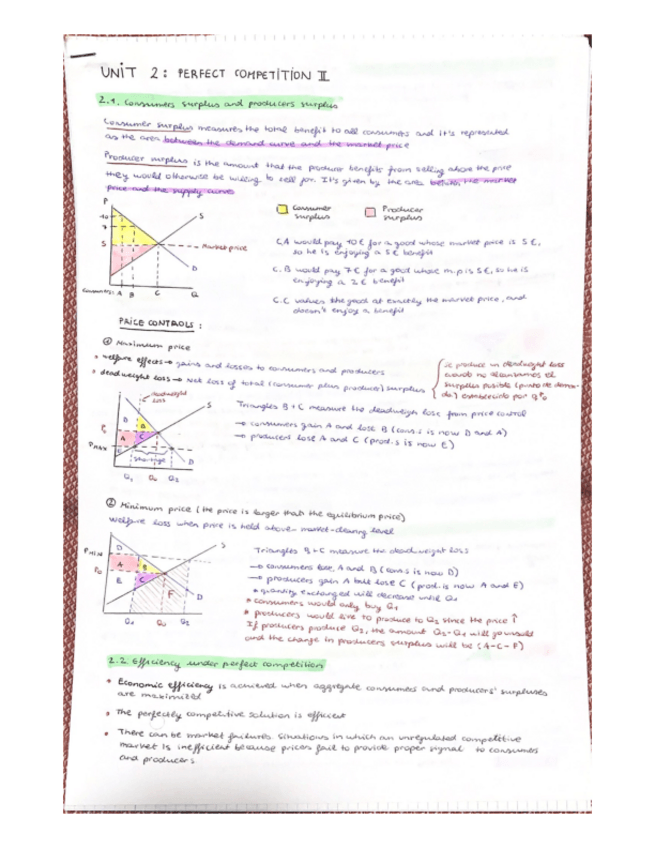 UNIT 2: PERFECT COMPETITION II
2.1. Consumers surplus and producers surplus
Consumer surplus measures the total benefit to all consumers and it's represented
as the area between the demand curve and the market price
Producer surplus is the amount that the producer benefits from selling above the price
they would otherwise be willing to sell for. It's given by the area between the market
price and the supply curve
P
10
7
5
S
Market price
D
Consumers: A B C Q
Consumer surplus
Producer surplus
C.A would pay 10€ for a good whose market price is 5€,
so he is enjoying a 5€ benefit
C.B would pay 7€ for a good whose m.p is 5€, so he is
enjoying a 2€ benefit
C.C values the good at exactly the market price, and
doesn't enjoy a benefit
PRICE CONTROLS:
① Maximum price
• welfare effects → gains and losses to consumers and producers
• deadweight loss → Net loss of total (consumer plus producer) surplus
se produce un deadweight loss
cuando no alcanzamos el
surplus posible (punto de deman-
da) establecido por
deadweight loss
S
D
B
P0
A
C
PMAX
E
shortage
D
Q1 Q0 Q2
Triangles B + C measure the deadweigh loss from price control
→ consumers gain A and lose B (cons.s is now D and A)
→ producers lose A and C (prod.s is now E)
② Minimum price (the price is larger than the equilibrium price)
Welfare loss when price is held above-market-clearing level
S
D
PMIN
A
B
P0
E
C
F
D
Q1 Q0 Q2
Triangles B + C measure the deadweight loss
→ consumers lose A and B (cons.s is now D)
→ producers gain A but lose C (prod.is now A and E)
* quantity exchanged will decrease until Q1
* consumers would only buy Q1
* producers would like to produce to Q2 since the price ↑
If producers produce Q2, the amount Q2-Q1 will go unsold
and the change in producers surplus will be (A-C-F)
2.2 Efficiency under perfect competition
• Economic efficiency is achieved when aggregate consumers and producers' surpluses
are maximized
• The perfectly competitive solution is efficient
• There can be market failures. Situations in which an unregulated competitive
market is inefficient because prices fail to provide proper signal to consumers
and producers